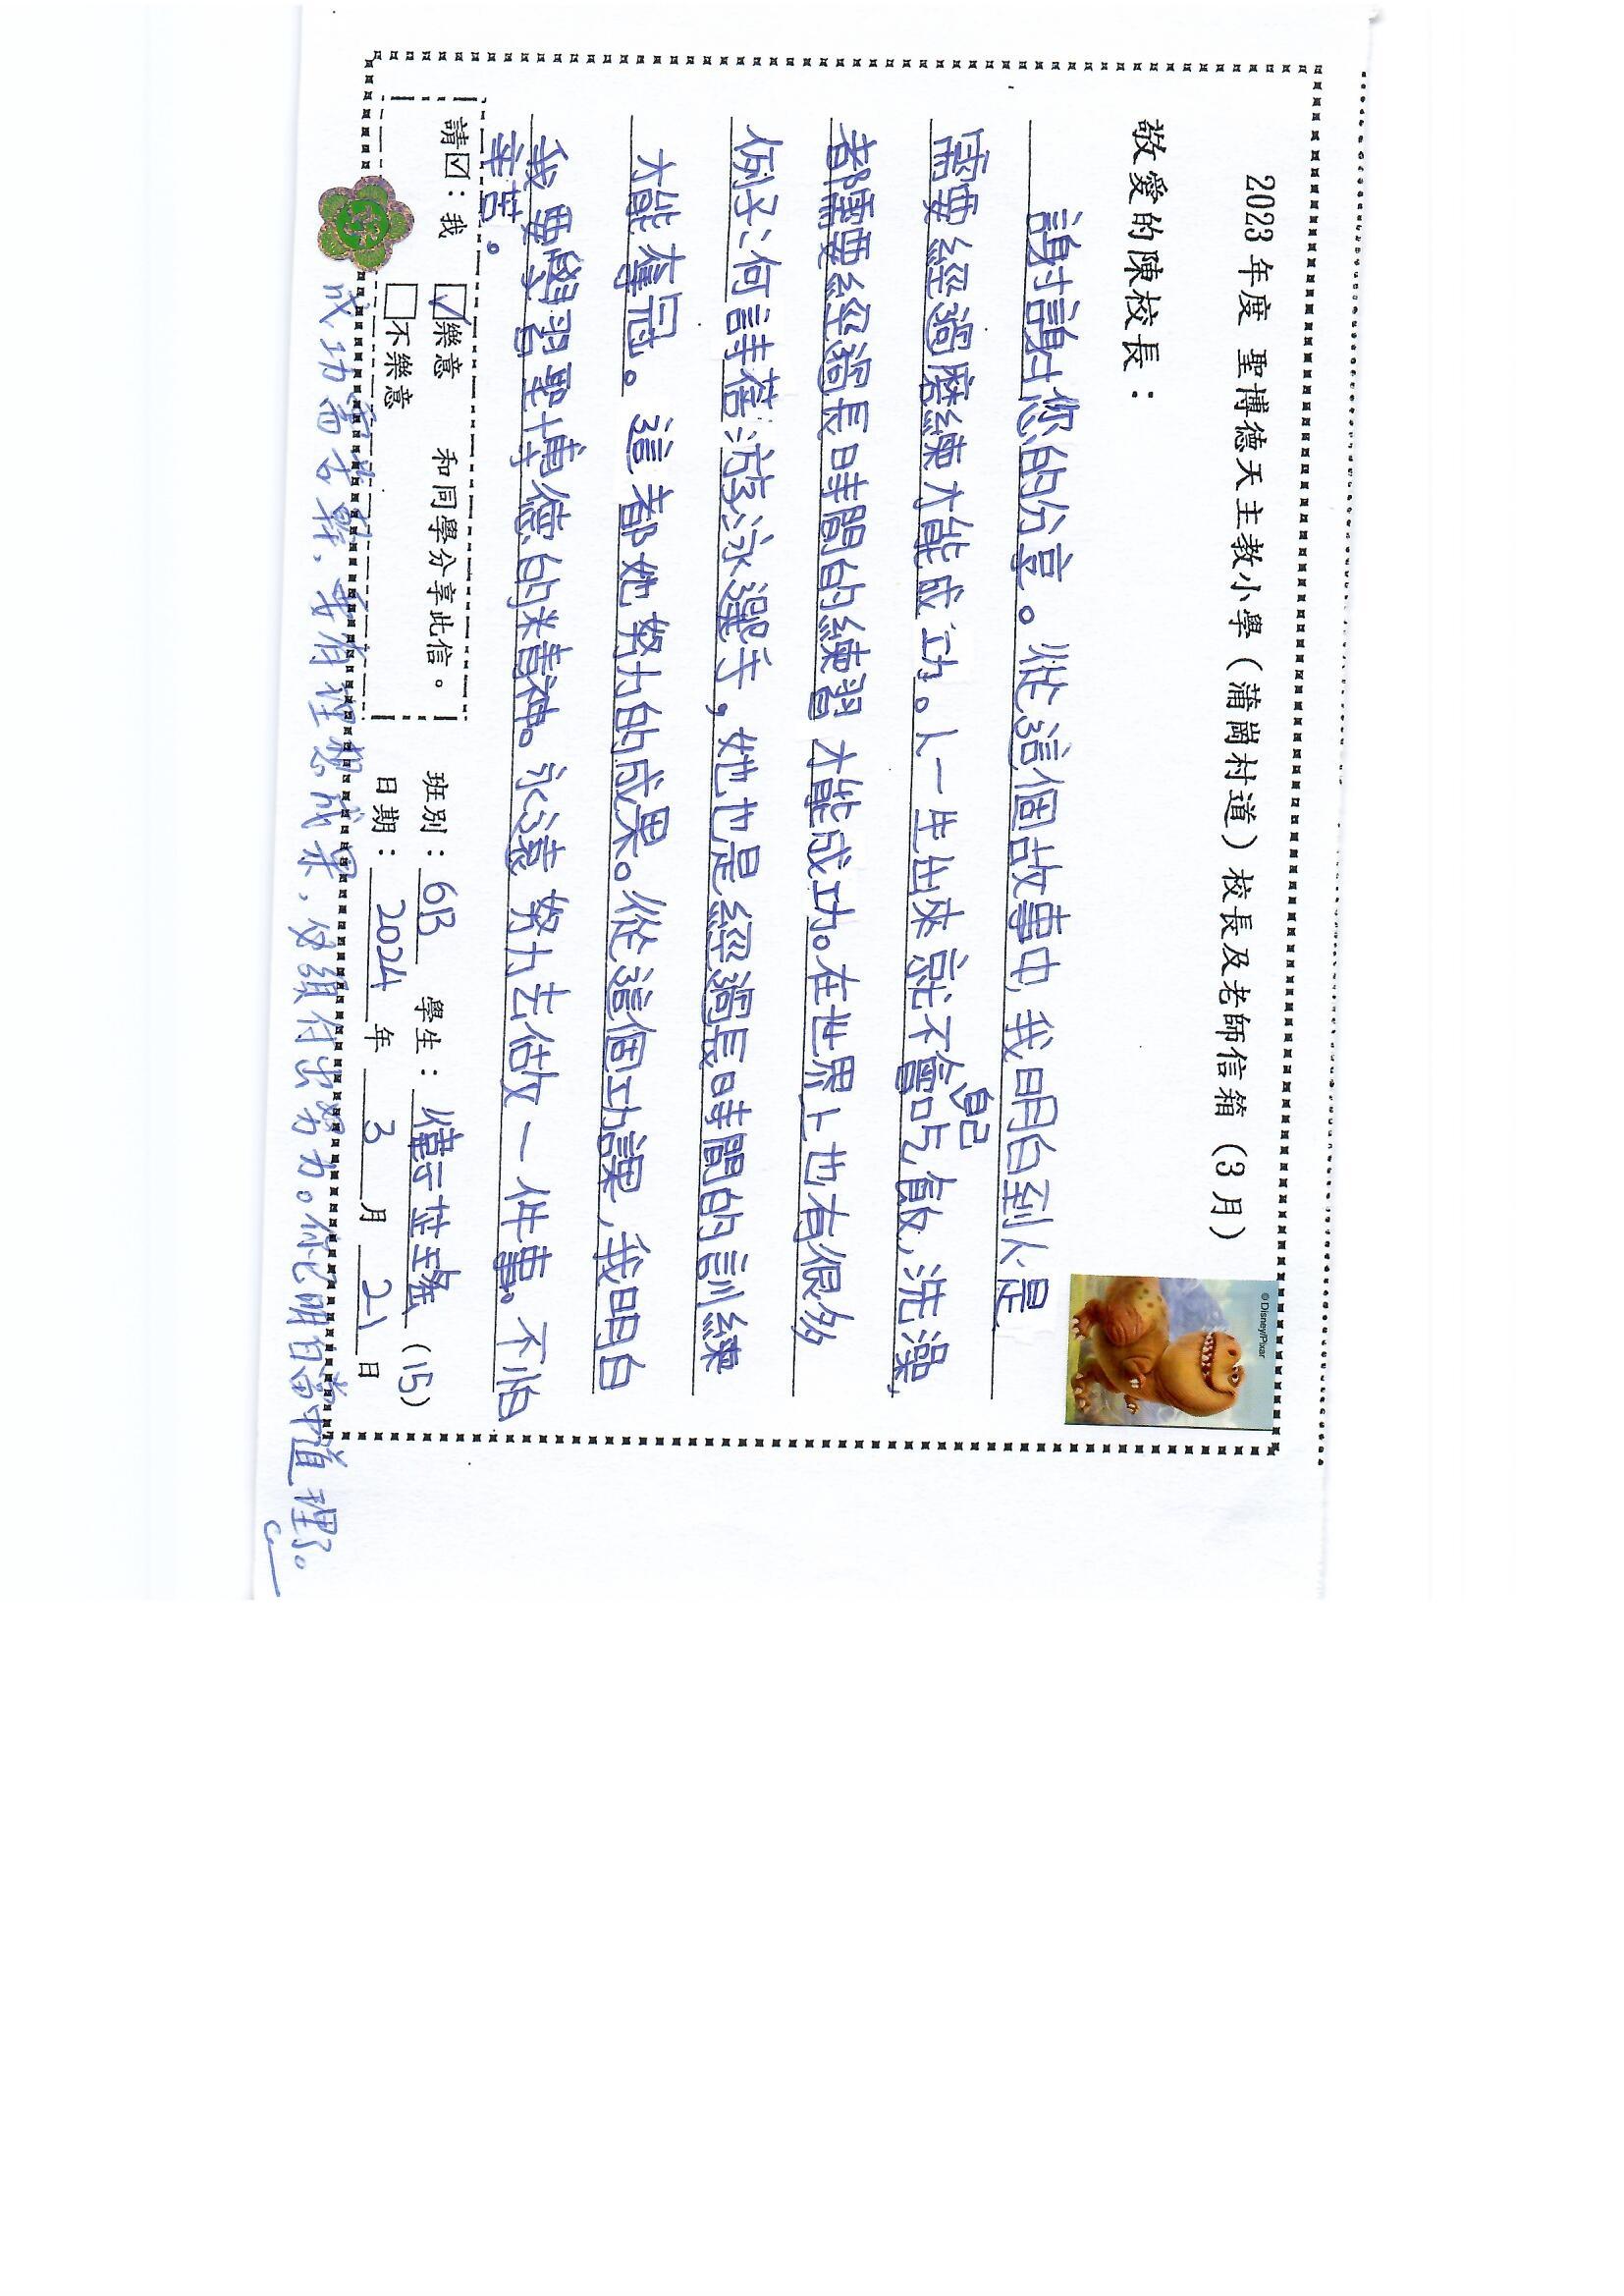 2023年度 聖博德天主教小學（蒲崗村道）校長及老師信箱（3月）
© Disney/Pixar
敬愛的陳校長：
謝謝您的分享。從這個故事中，我明白到人是
需要經過磨練才能成功。人一生出來就不會自己吃飯，洗澡，
都需要經過長時間的練習才能成功。在世界上也有很多
例子：何詩蓓游泳選手，她也是經過長時間的訓練
才能奪冠。這都她努力的成果。從這個功課，我明白
我要學習聖博德的精神。永遠努力去做一件事。不怕
辛苦。
請☑：我 ☑樂意 和同學分享此信。
□不樂意
班別：6B 學生： (15)
日期：2024年3月21日
成功需苦幹，要有理想成果，必須付出努力。你已明白當中道理了。